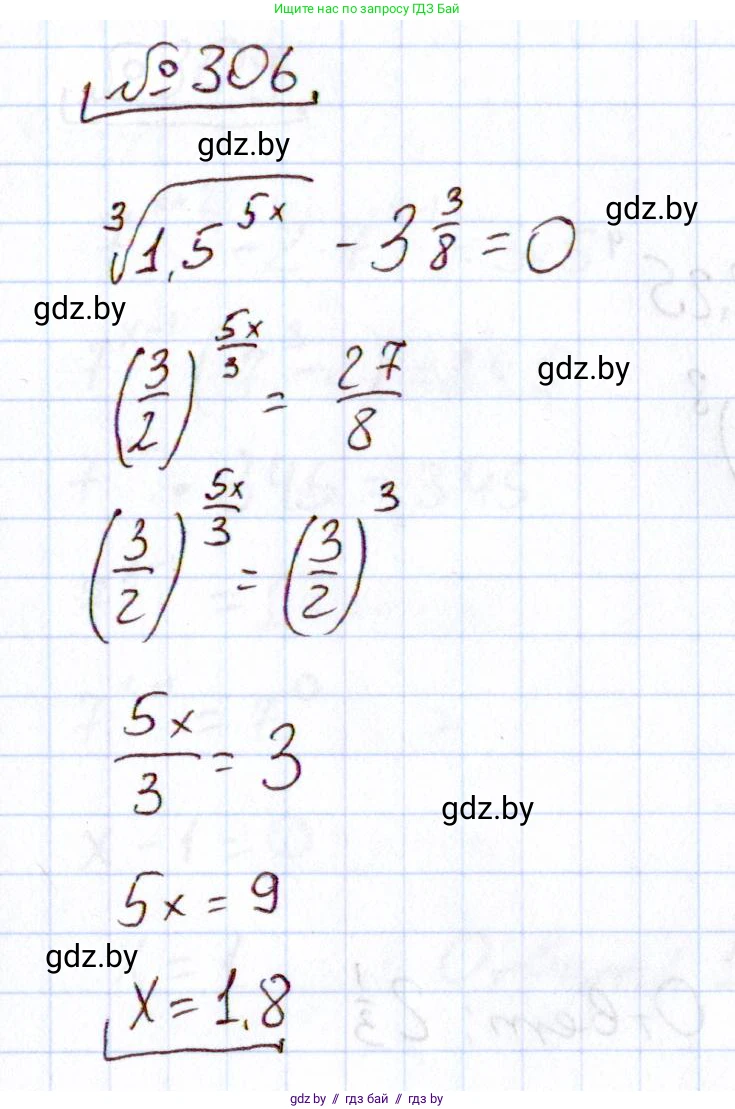 Ищите нас по запросу ГДЗ Бай
№ 306.
gdz.by
∛(1,5^(5x)) - 3 3/8 = 0
gdz.by
gdz.by
(3/2)^(5x/3) = 27/8
gdz.by
(3/2)^(5x/3) = (3/2)^3
5x/3 = 3
gdz.by
5x = 9
gdz.by
x = 1,8
gdz.by // гдз бай // gdz.by